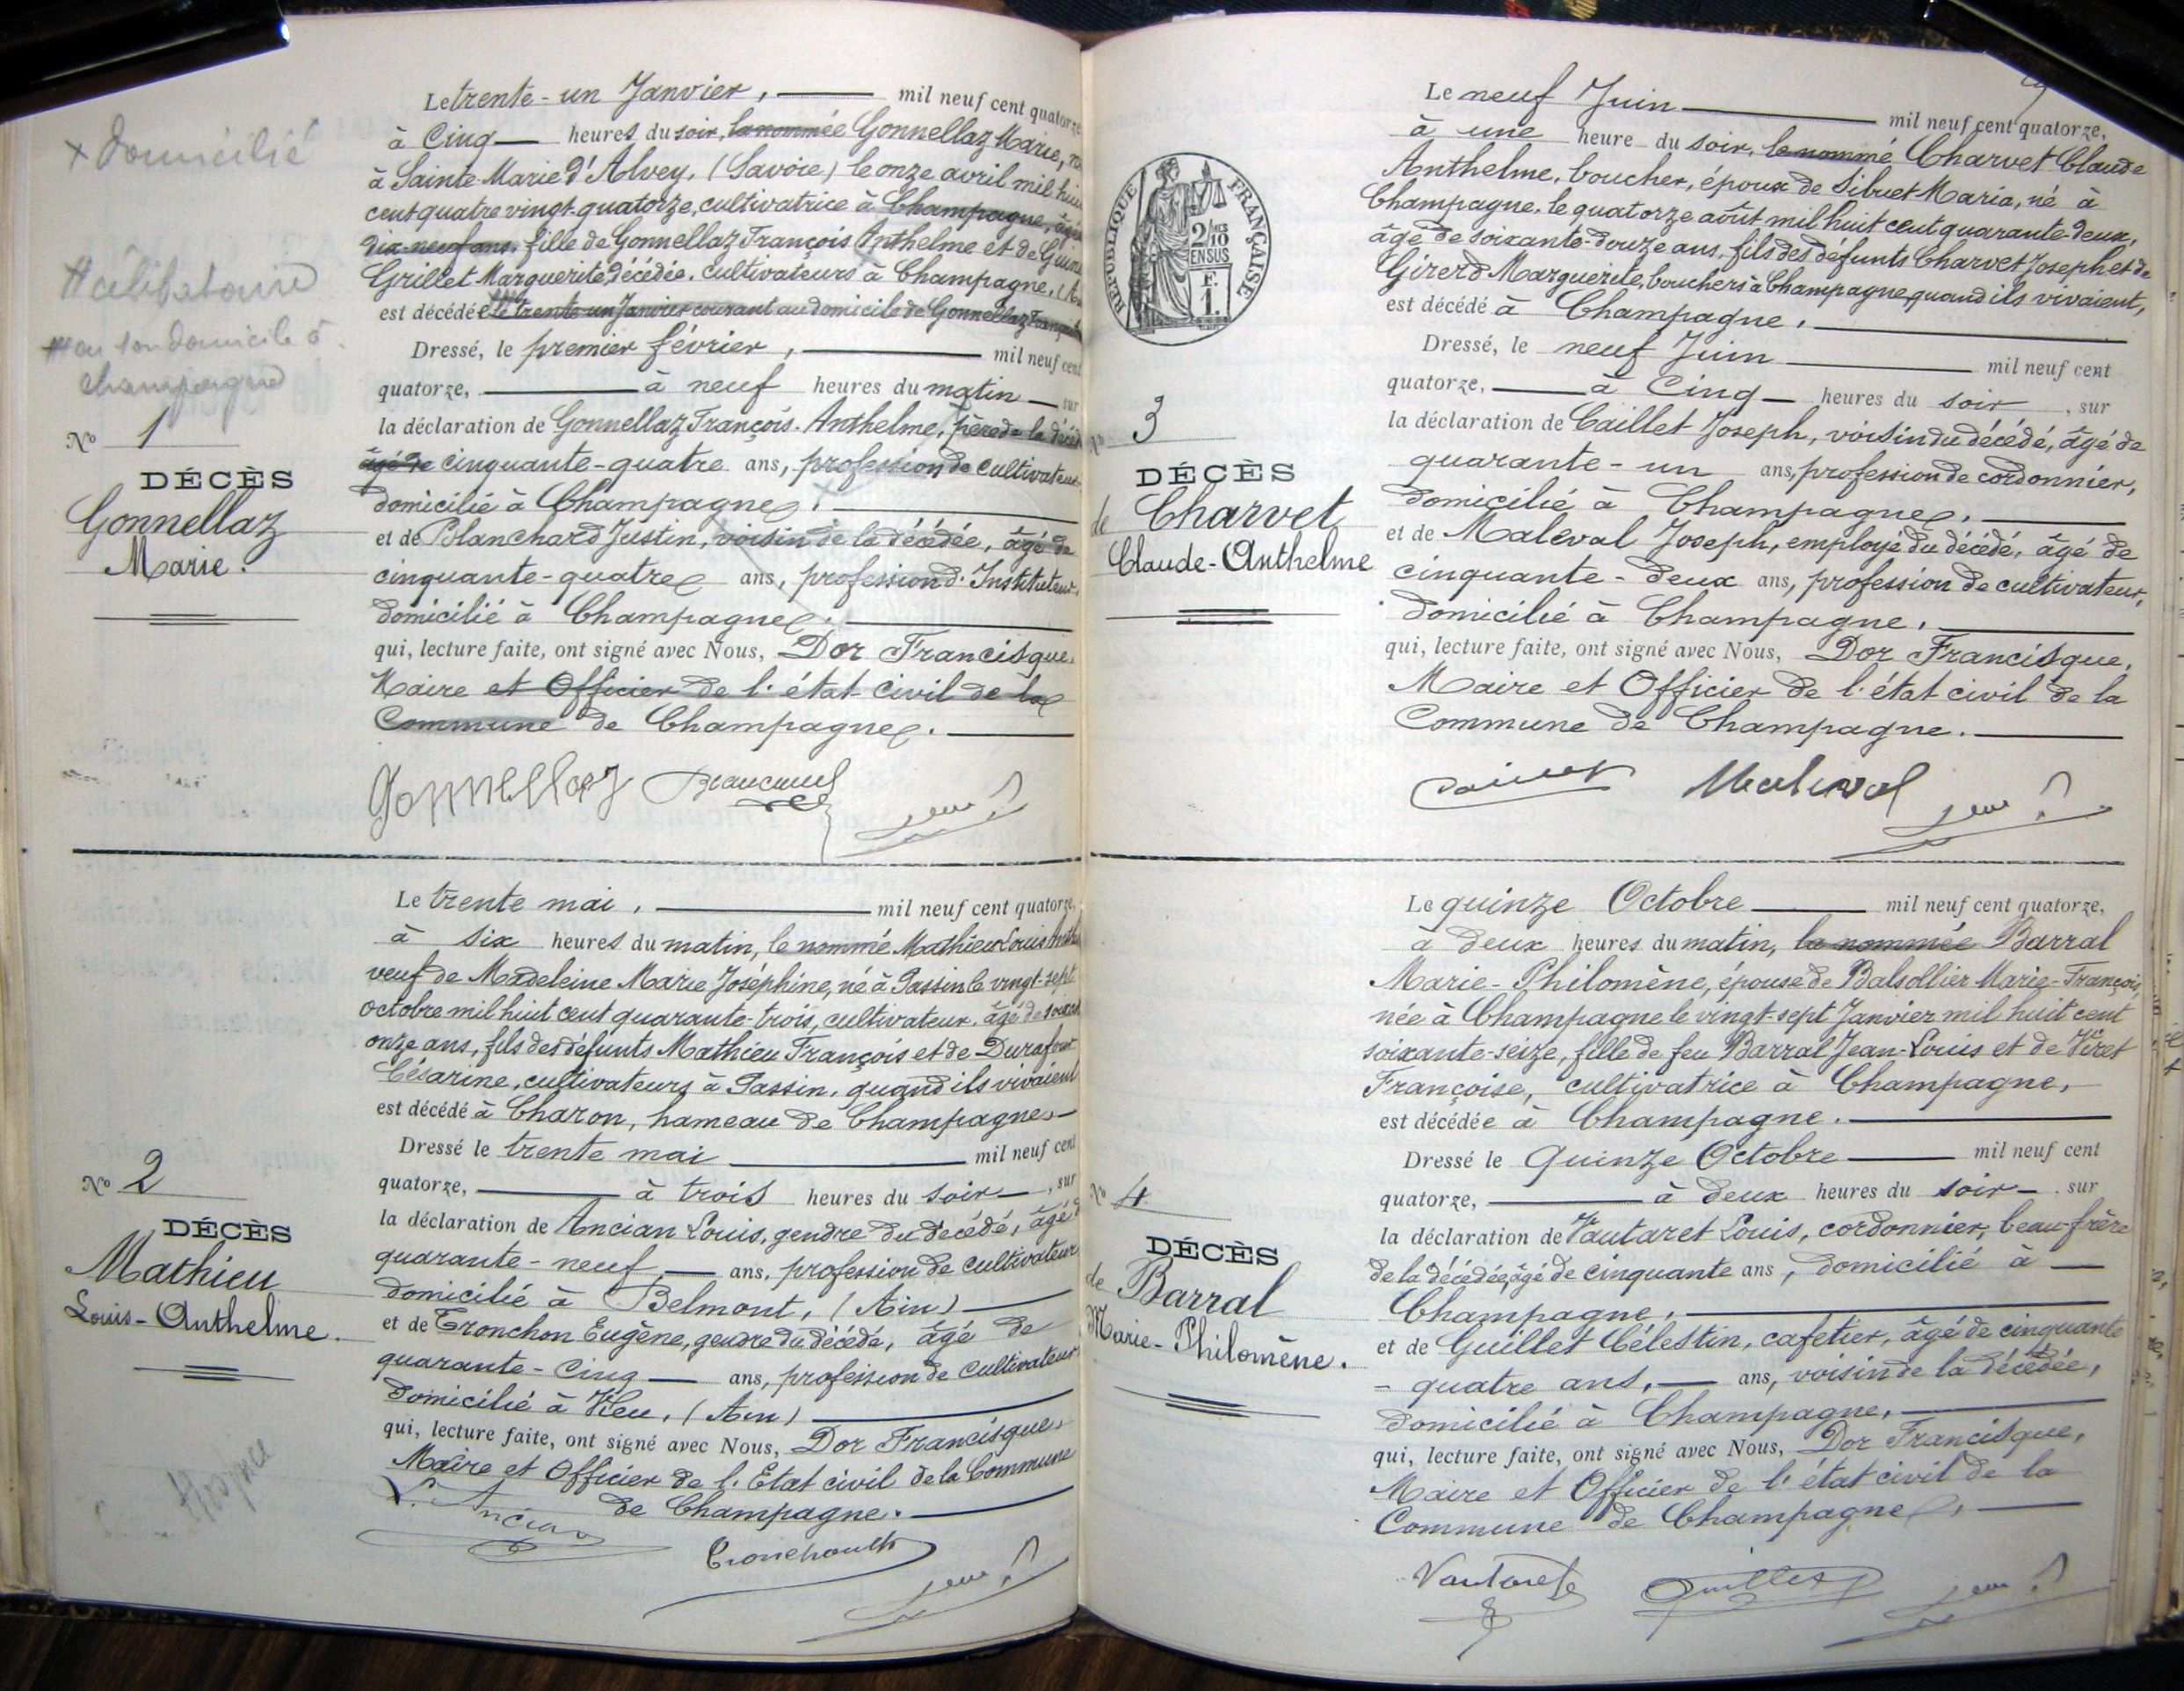 x domicilié
# célibataire
# en son domicile à
champagne
Le trente-un Janvier, mil neuf cent quatorze
à Cinq heures du soir, la nommée Gonnellaz Marie,
à Sainte Marie d'Alvey, (Savoie) le onze avril mil huit
cent quatre vingt-quatorze, cultivatrice à Champagne, âgée
dix-neuf ans, fille de Gonnellaz François Anthelme et de
Grillet Marguerite décédée, cultivateurs à Champagne,
est décédée le trente-un Janvier courant au domicile de Gonnellaz François
Dressé, le premier février, mil neuf cent
quatorze, à neuf heures du matin sur
la déclaration de Gonnellaz François-Anthelme, père de la
âgé de cinquante-quatre ans, profession de cultivateur
domicilié à Champagne,
et de Blanchard Justin, voisin de la décédée, âgé de
cinquante-quatre ans, profession d'Instituteur,
domicilié à Champagne.
qui, lecture faite, ont signé avec Nous, Dor Francisque,
Maire et Officier de l'état civil de la
Commune de Champagne.
Gonnellaz
N° 1
DÉCÈS
Gonnellaz
Marie.
Le trente mai, mil neuf cent quatorze,
à six heures du matin, le nommé Mathieu Louis
veuf de Madeleine Marie Joséphine, né à Passin le vingt-sept
octobre mil huit cent quarante-trois, cultivateur, âgé de
onze ans, fils des défunts Mathieu François et de Durafour
Césarine, cultivateurs à Passin, quand ils vivaient
est décédé à Charon, hameau de Champagne
Dressé le trente mai mil neuf cent
quatorze, à trois heures du soir, sur
la déclaration de Ancian Louis, gendre du décédé, âgé
quarante-neuf ans, profession de cultivateur
domicilié à Belmont, (Ain)
et de Tronchon Eugène, gendre du décédé, âgé de
quarante-cinq ans, profession de cultivateur
domicilié à Vieu, (Ain)
qui, lecture faite, ont signé avec Nous, Dor Francisque,
Maire et Officier de l'Etat civil de la Commune
de Champagne.
L. Ancian
N° 2
DÉCÈS
Mathieu
Louis-Anthelme.
RÉPUBLIQUE FRANÇAISE
2/10 EN SUS
F.
1.
Le neuf Juin mil neuf cent quatorze,
à une heure du soir, le nommé Charvet Claude
Anthelme, boucher, époux de Sibuet Maria, né à
Champagne, le quatorze août mil huit cent quarante-deux,
âgé de soixante-douze ans, fils des défunts Charvet Joseph et de
Gірerd Marguerite, bouchers à Champagne, quand ils vivaient,
est décédé à Champagne,
Dressé, le neuf Juin mil neuf cent
quatorze, à Cinq heures du soir, sur
la déclaration de Caillet Joseph, voisin du décédé, âgé de
quarante-un ans, profession de cordonnier,
domicilié à Champagne,
et de Maleval Joseph, employé du décédé, âgé de
cinquante-deux ans, profession de cultivateur,
domicilié à Champagne,
qui, lecture faite, ont signé avec Nous, Dor Francisque,
Maire et Officier de l'état civil de la
Commune de Champagne.
Maleval
N° 3
DÉCÈS
de Charvet
Claude-Anthelme
Le quinze Octobre mil neuf cent quatorze,
à deux heures du matin, la nommée Barral
Marie-Philomène, épouse de Balsollier Marie-François,
née à Champagne le vingt-sept Janvier mil huit cent
soixante-seize, fille de feu Barral Jean-Louis et de Viret
Françoise, cultivatrice à Champagne,
est décédée à Champagne.
Dressé le Quinze Octobre mil neuf cent
quatorze, à deux heures du soir, sur
la déclaration de Vautaret Louis, cordonnier, beau-frère
de la décédée, âgé de cinquante ans, domicilié à
Champagne,
et de Guillet Célestin, cafetier, âgé de cinquante
-quatre ans, ans, voisin de la décédée,
domicilié à Champagne,
qui, lecture faite, ont signé avec Nous, Dor Francisque,
Maire et Officier de l'état civil de la
Commune de Champagne,
Vautaret Guillet
N° 4
DÉCÈS
de Barral
Marie-Philomène.